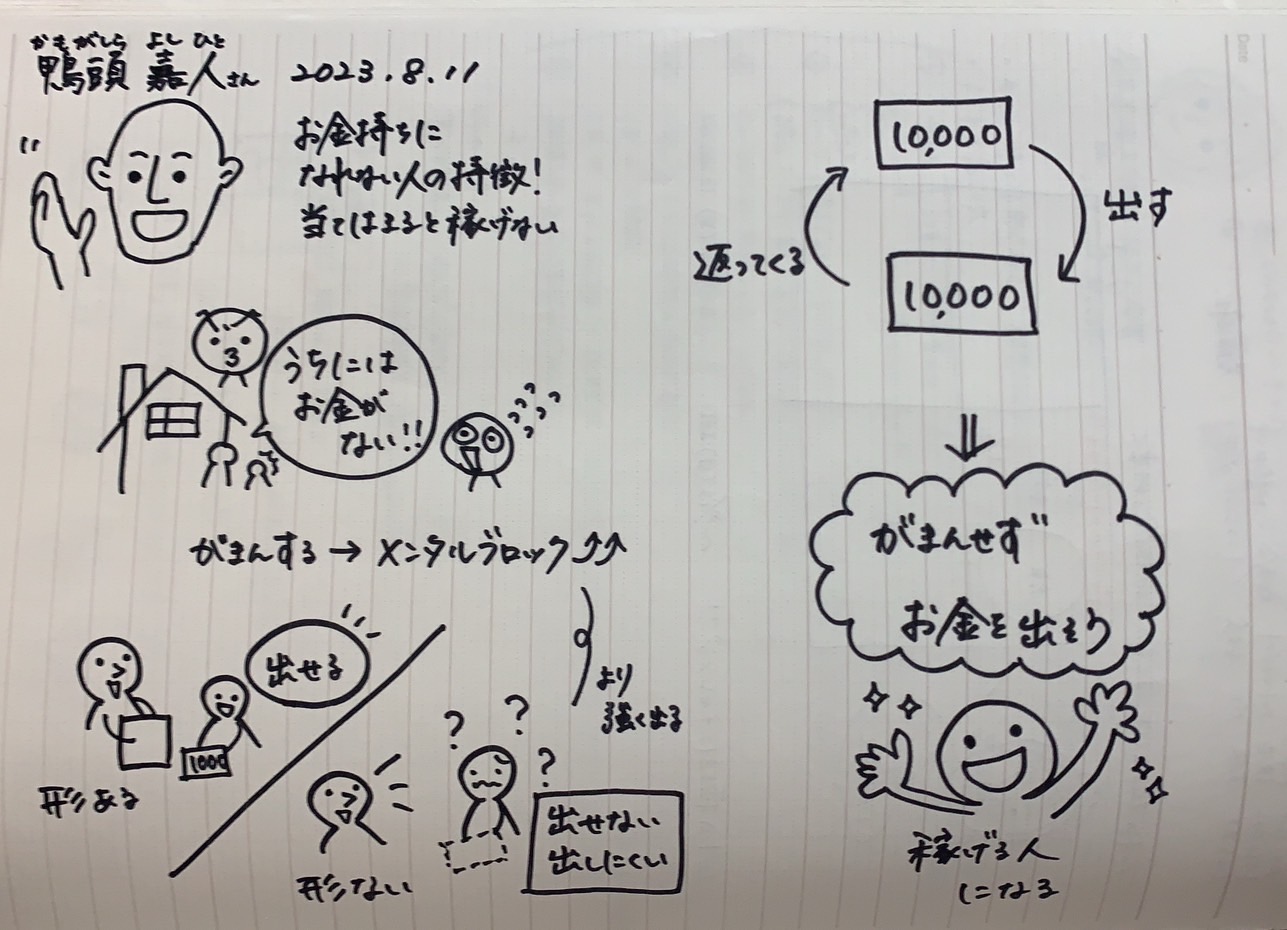 かもがしら よし ひと
鴨頭 嘉人さん 2023.8.11
お金持ちに
なれない人の特徴!
当てはまると稼げない
うちには
お金が
ない!!
???
???
がまんする→メンタルブロック↑↑
出せる
1000
形ある
より
強く出る
? ? ?
出せない
出しにくい
形ない
10,000
出す
返ってくる
10,000
⇓
がまんせず
お金を出そう
稼げる人
になる